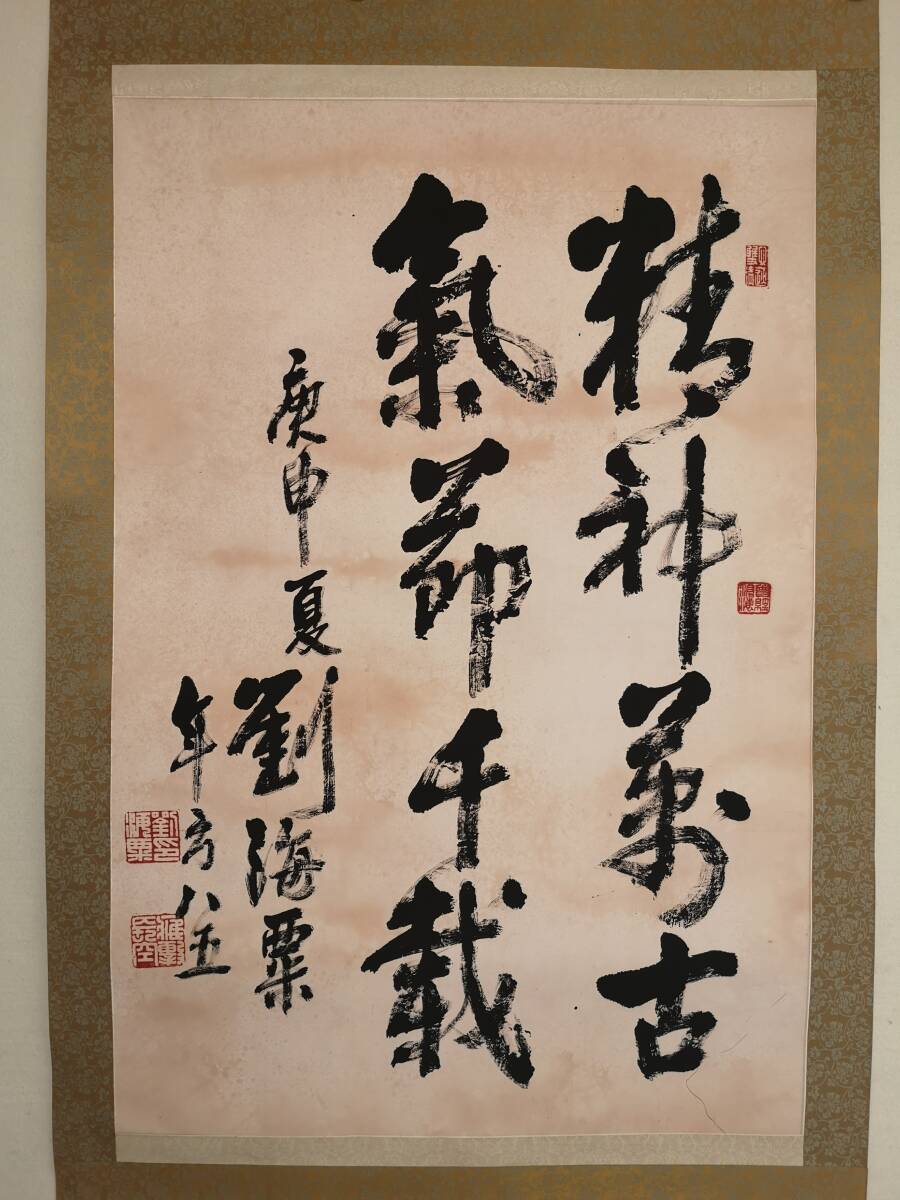 精神萬古
氣節千載
庚申夏劉海粟
年方八五
劉海粟印